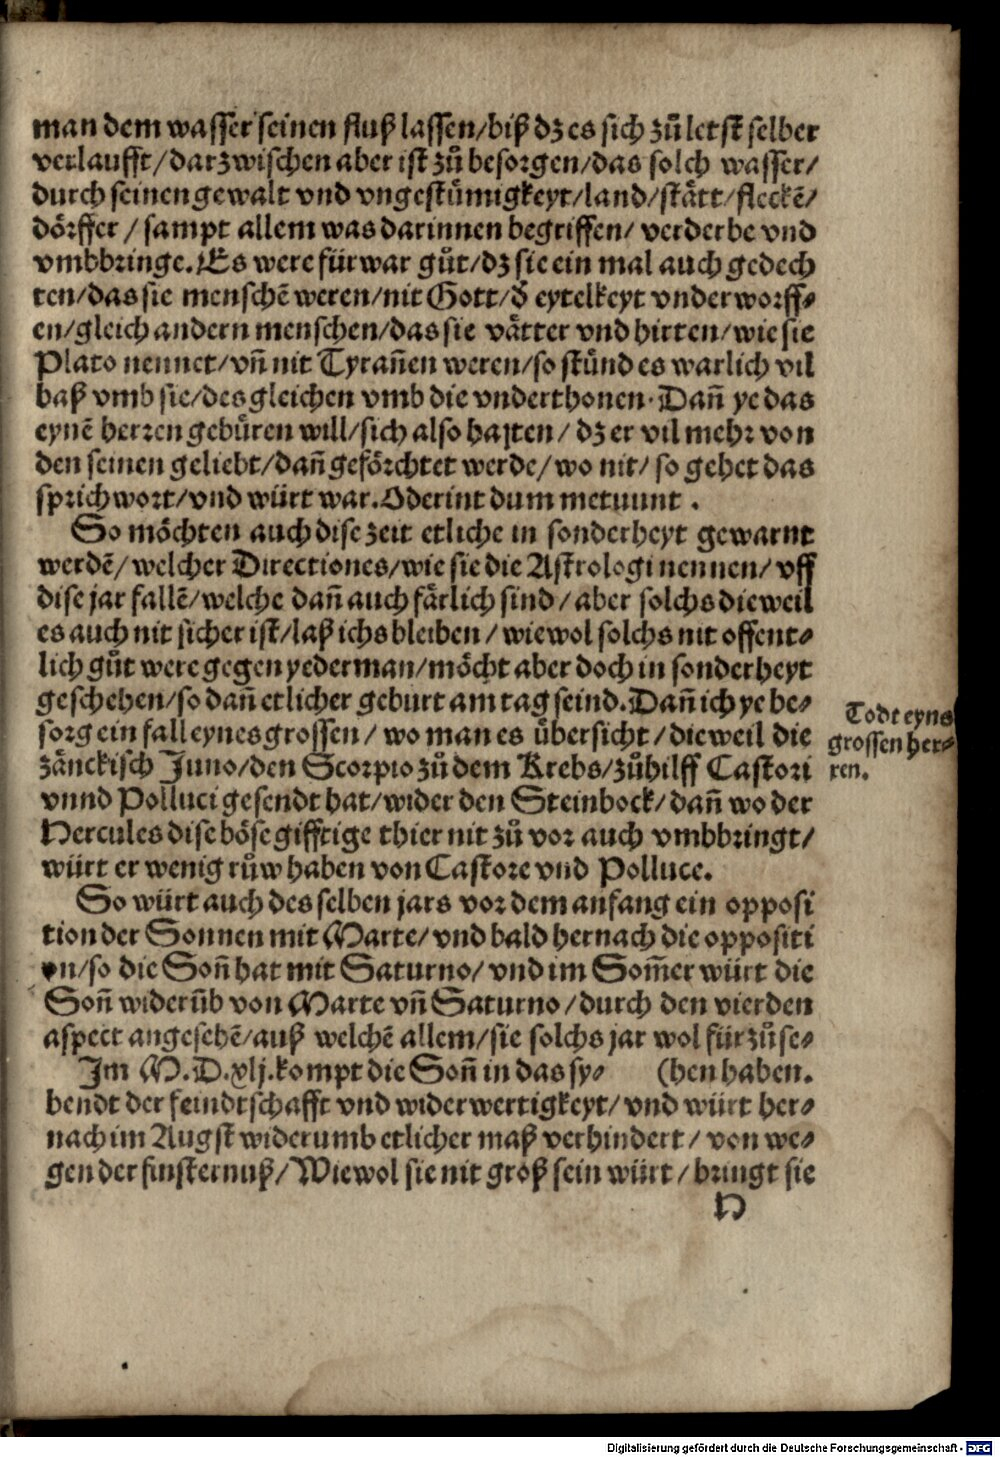 man dem wasser seinen fluß lassen/biß dz es sich zů letst selber
verlaufft/darzwischen aber ist zů besorgen/das solch wasser/
durch seinen gewalt vnd vngestümigkeyt/land/stätt/fleckē/
dörffer/sampt allem was darinnen begriffen/verderbe vnd
vmbbringe. Es were fürwar gůt/dz sie ein mal auch gedech
ten/das sie menschē weren/nit Gott/ď eytelkeyt vnderworff⸗
en/gleich andern menschen/das sie vätter vnd hirten/wie sie
Plato nennet/vñ nit Tyrañen weren/so stünd es warlich vil
baß vmb sie/desgleichen vmb die vnderthonen. Dañ ye das
eynē herren gebüren will/sich also halten/dz er vil mehr von
den seinen geliebt/dañ geförchtet werde/wo nit/so gehet das
sprichwort/vnd würt war. Oderint dum metuunt.
So möchten auch dise zeit etliche in sonderheyt gewarnt
werdē/welcher Directiones/wie sie die Astrologi nennen/vff
dise jar fallē/welche dañ auch färlich sind/aber solchs dieweil
es auch nit sicher ist/laß ichs bleiben/wiewol solchs nit offent⸗
lich gůt were gegen yederman/möcht aber doch in sonderheyt
geschehen/so dañ etlicher geburt am tag seind. Dañ ich ye be⸗
sorg ein fall eynes grossen/wo man es übersicht/dieweil die
zänckisch Juno/den Scorpio zů dem Krebs/zůhilff Castori
vnnd Polluci gesendt hat/wider den Steinbock/dañ wo der
Hercules dise böse gifftige thier nit zů vor auch vmbbringt/
würt er wenig růw haben von Castore vnd Polluce.
Todt eyns
grossen her⸗
ren.
So würt auch des selben jars vor dem anfang ein opposi
tion der Sonnen mit Marte/vnd bald hernach die oppositi
on/so die Soñ hat mit Saturno/vnd im Som̃er würt die
Soñ widerüb von Marte vñ Saturno/durch den vierden
aspect angesehē/auß welchē allem/sie solchs jar wol fürzůse⸗
Im M.D.xlj. kompt die Soñ in das sy⸗ (hen haben.
bendt der feindtschafft vnd widerwertigkeyt/vnd würt her⸗
nach im Augst widerumb etlicher maß verhindert/von we⸗
gen der finsternuß/Wiewol sie nit groß sein würt/bringt sie
D
Digitalisierung gefördert durch die Deutsche Forschungsgemeinschaft - DFG